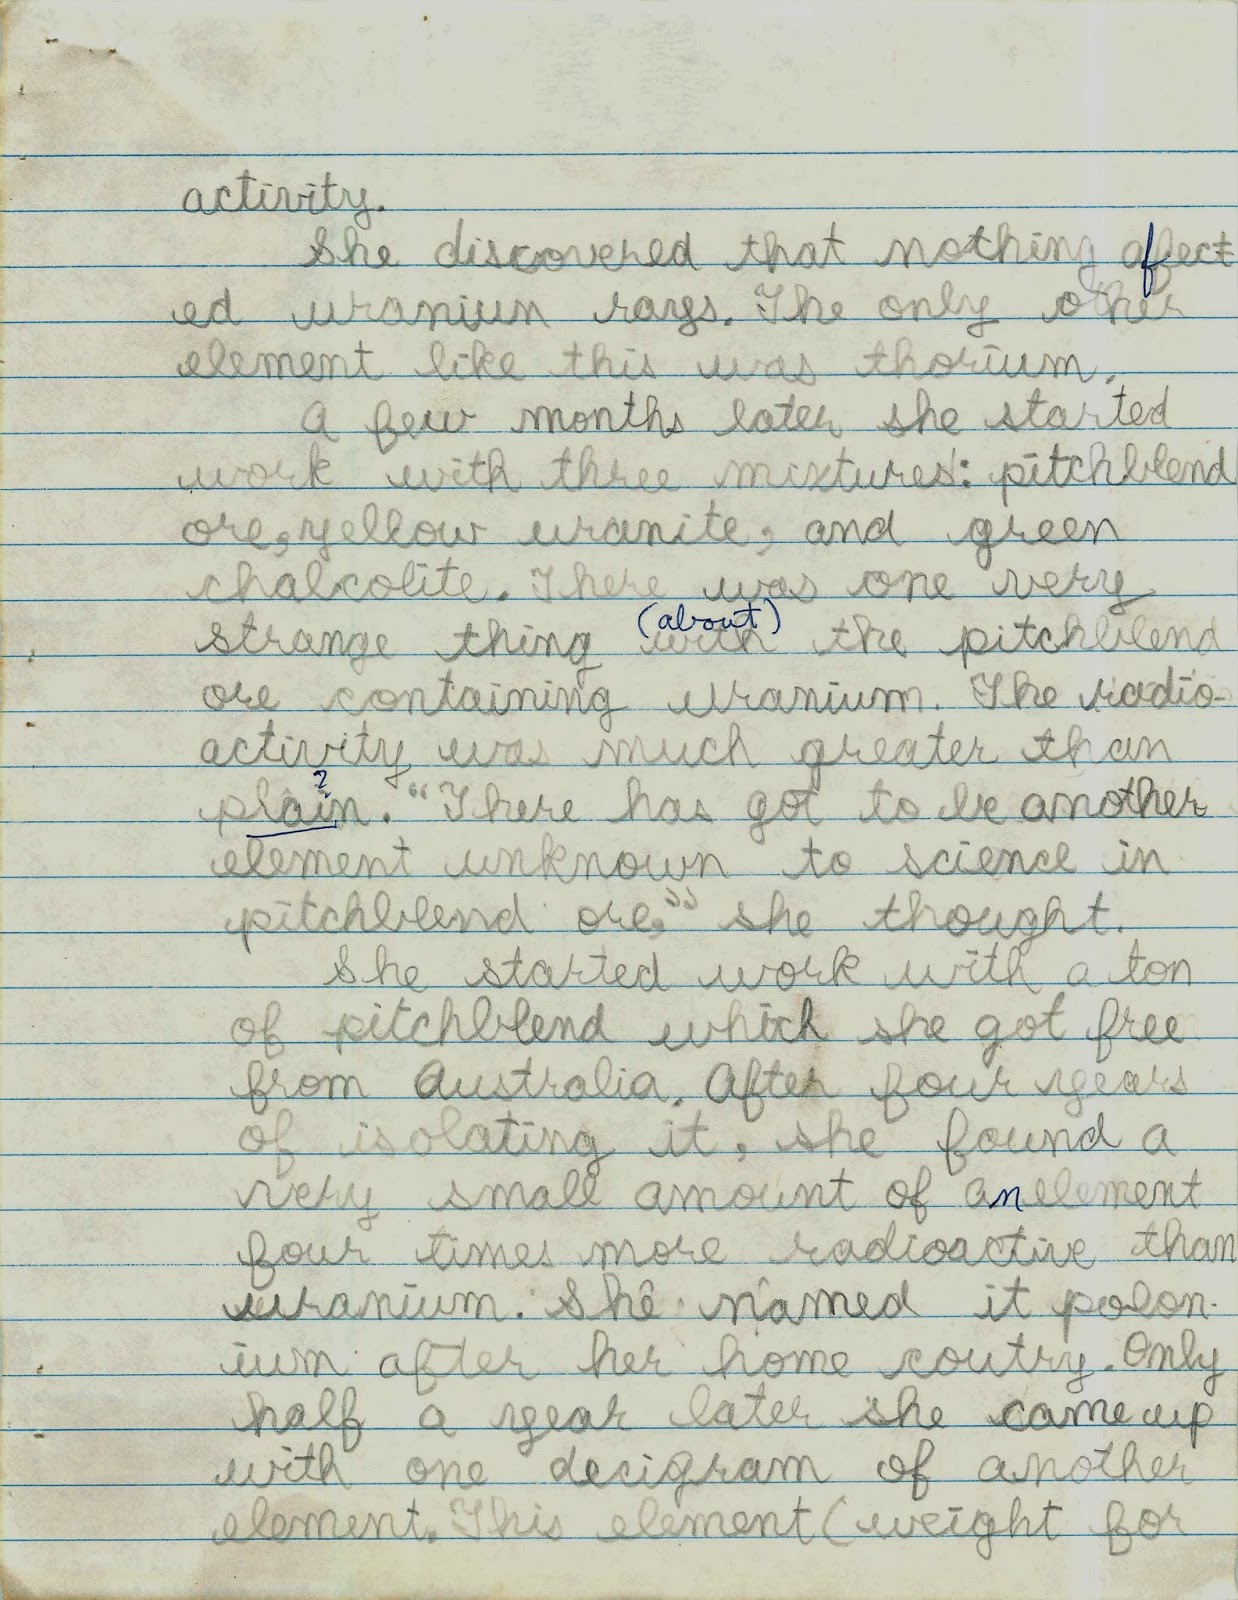 activity.
She discovered that nothing affect
ed uranium rays. The only other
element like this was thorium.
A few months later she started
work with three mixtures: pitchblend
ore, yellow uranite, and green
chalcolite. There was one very
(about)
strange thing with the pitchblend
ore containing uranium. The radio-
activity was much greater than
?
plain. "There has got to be another
element unknown to science in
pitchblend ore," she thought.
She started work with a ton
of pitchblend which she got free
from Australia. After four years
of isolating it, she found a
very small amount of an element
four times more radioactive than
uranium. She named it polon-
ium after her home coutry. Only
half a year later she came up
with one decigram of another
element. This element (weight for